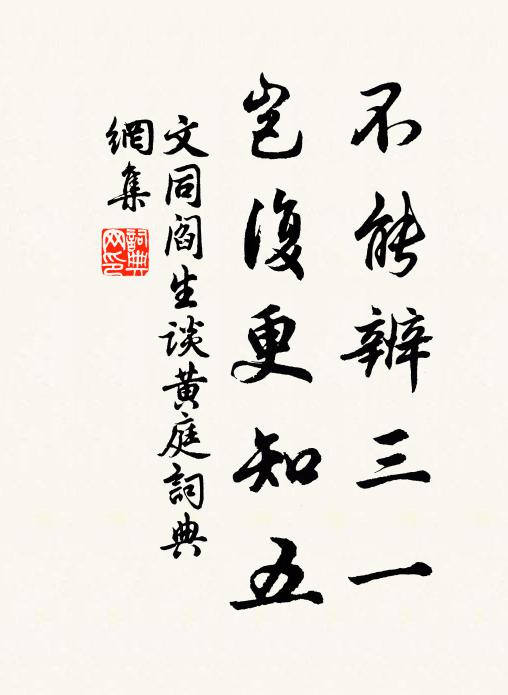 不能辨三一
豈復更知五
文同閻生谈黄庭詞典
網集
詞典
网印